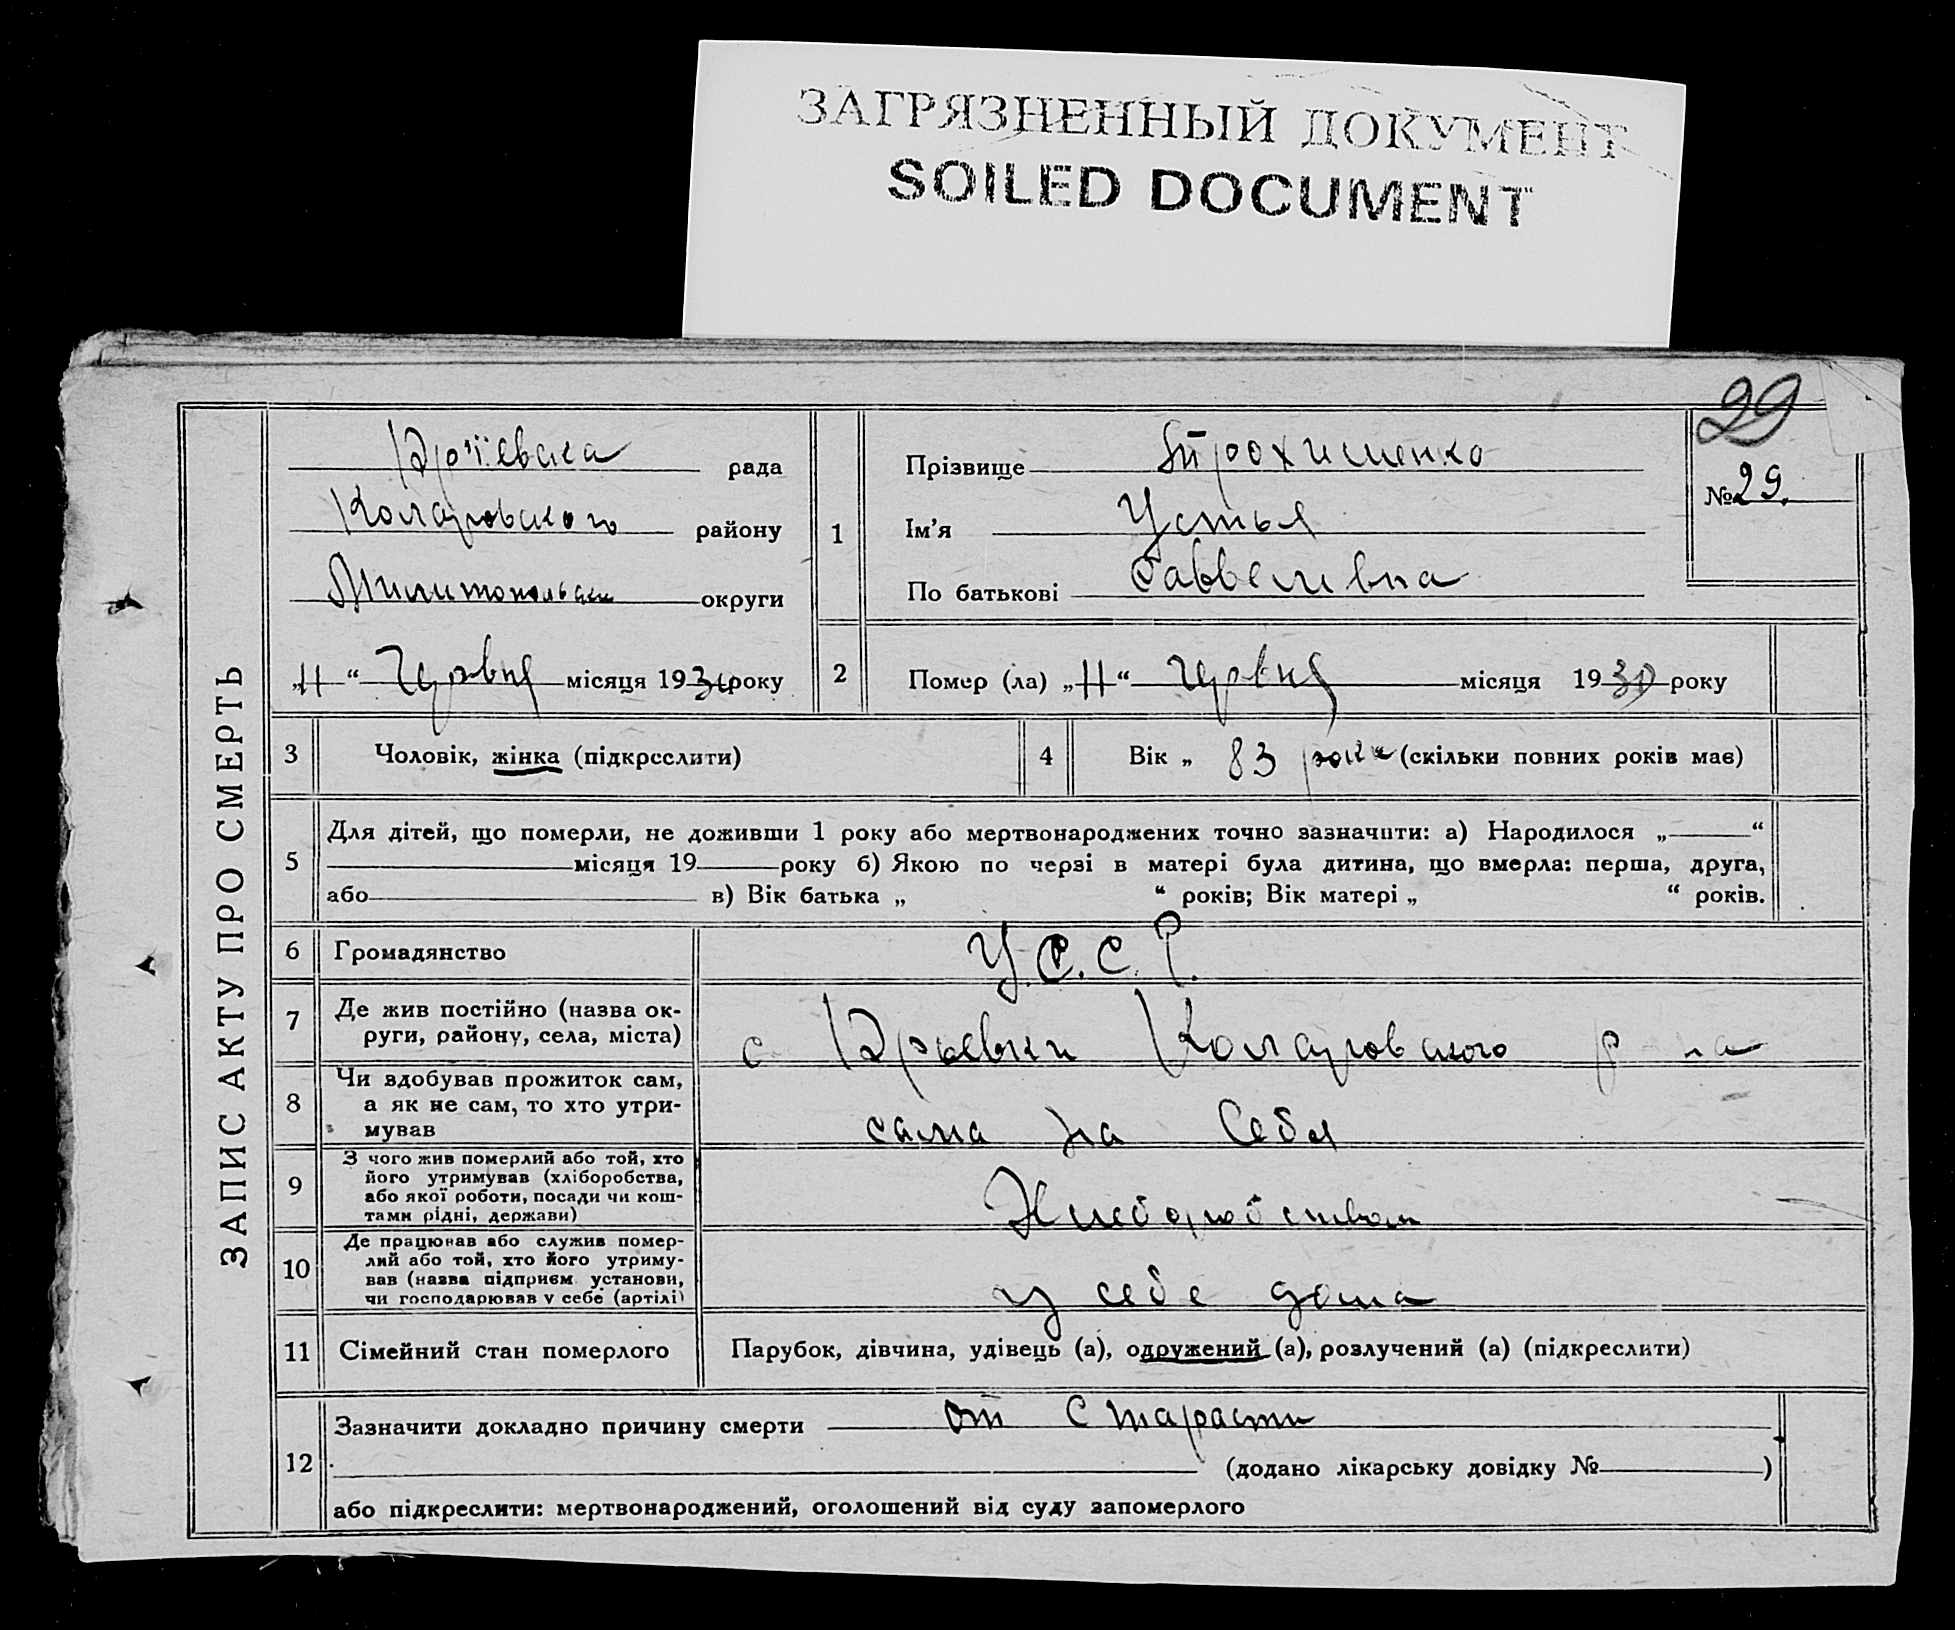 ЗАГРЯЗНЕННЫЙ ДОКУМЕНТ
SOILED DOCUMENT
29
ЗАПИС АКТУ ПРО СМЕРТЬ
Юр'ївська рада
Коларовського району
округи
„11“ Червня місяця 1930 року
1
Прізвище Трохименко
Ім'я Устья
По батькові Саввелівна
№ 29.
2
Помер (ла) „11“ червня місяця 1930 року
3 Чоловік, жінка (підкреслити)
4 Вік „ 83 роки (скільки повних років має)
5
Для дітей, що померли, не доживши 1 року або мертвонароджених точно зазначити: а) Народилося „ “
місяця 19 року б) Якою по черзі в матері була дитина, що вмерла: перша, друга,
або в) Вік батька „ “ років; Вік матері „ “ років.
6 Громадянство У.С.С.Р.
7 Де жив постійно (назва ок-
руги, району, села, міста)
с Юрьевки Коларовского р на
8 Чи здобував прожиток сам,
а як не сам, то хто утри-
мував
сама на себя
9 З чого жив померлий або той, хто
його утримував (хліборобства,
або якої роботи, посади чи кош-
тами рідні, держави)
Хлеборобством
10 Де працював або служив помер-
лий або той, хто його утриму-
вав (назва підприєм. установи,
чи господарював у себе (артілі)
у себе дома
11 Сімейний стан померлого Парубок, дівчина, удівець (а), одружений (а), розлучений (а) (підкреслити)
12
Зазначити докладно причину смерти от старасти
(додано лікарську довідку № )
або підкреслити: мертвонароджений, оголошений від суду запомерлого